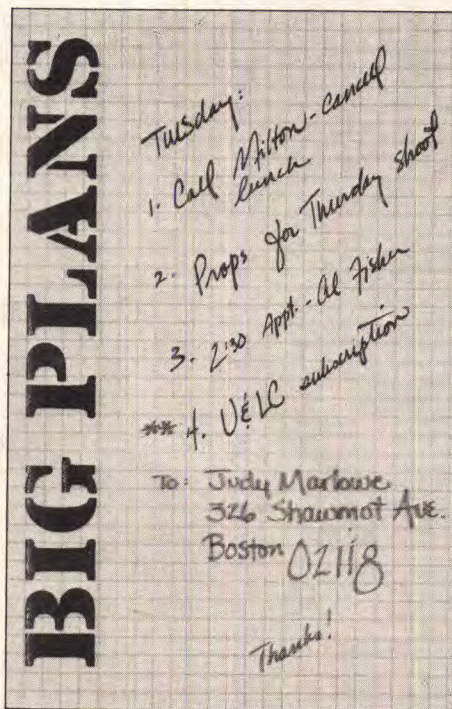 BIG PLANS
Tuesday:
1. Call Milton - cancel
lunch
2. Props for Thursday shoot
3. 2:30 Appt. - Al Fisher
** 4. U&LC subscription
To: Judy Marlowe
326 Shawmot Ave.
Boston 02118
Thanks!